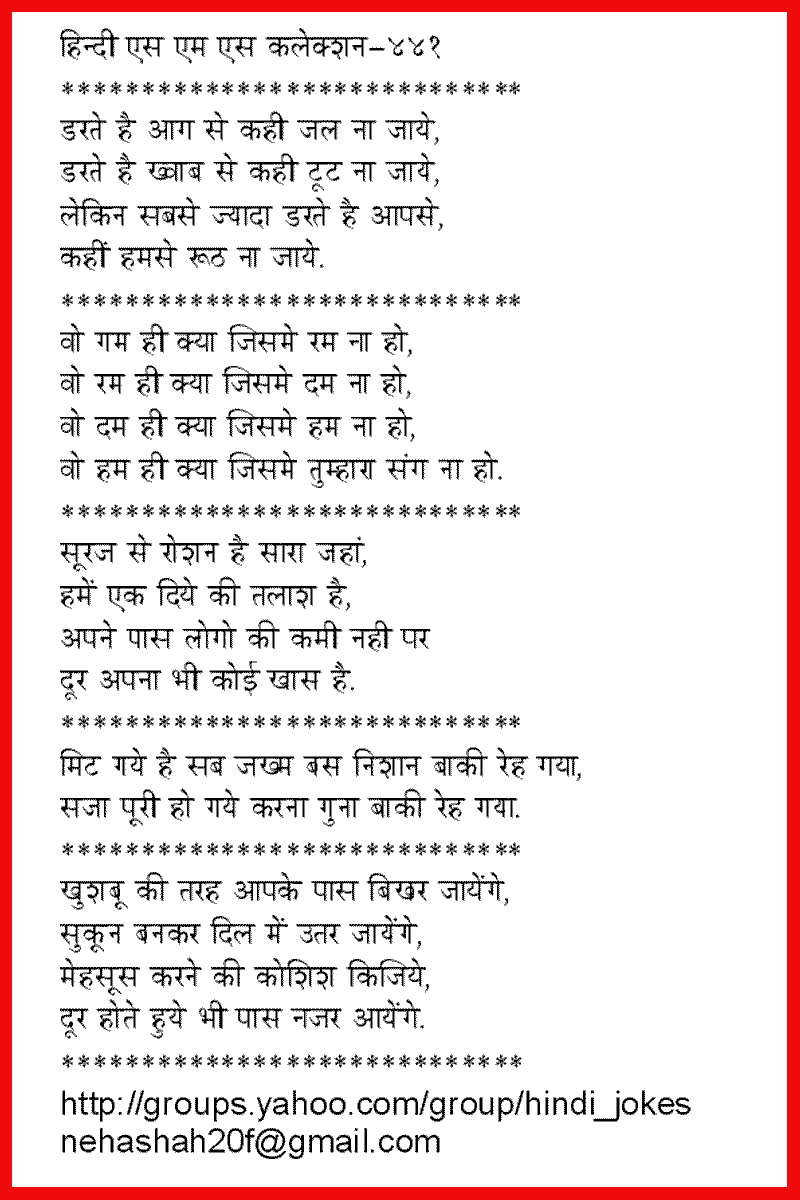 हिन्दी एस एम एस कलेक्शन-४४१
*****************************
डरते है आग से कही जल ना जाये,
डरते है ख्वाब से कही टूट ना जाये,
लेकिन सबसे ज्यादा डरते है आपसे,
कहीं हमसे रूठ ना जाये.
*****************************
वो गम ही क्या जिसमे रम ना हो,
वो रम ही क्या जिसमे दम ना हो,
वो दम ही क्या जिसमे हम ना हो,
वो हम ही क्या जिसमे तुम्हारा संग ना हो.
*****************************
सूरज से रोशन है सारा जहां,
हमें एक दिये की तलाश है,
अपने पास लोगो की कमी नही पर
दूर अपना भी कोई खास है.
*****************************
मिट गये है सब जख्म बस निशान बाकी रेह गया,
सजा पूरी हो गये करना गुना बाकी रेह गया.
*****************************
खुशबू की तरह आपके पास बिखर जायेंगे,
सुकून बनकर दिल में उतर जायेंगे,
मेहसूस करने की कोशिश किजिये,
दूर होते हुये भी पास नजर आयेंगे.
*****************************
http://groups.yahoo.com/group/hindi_jokes
nehashah20f@gmail.com